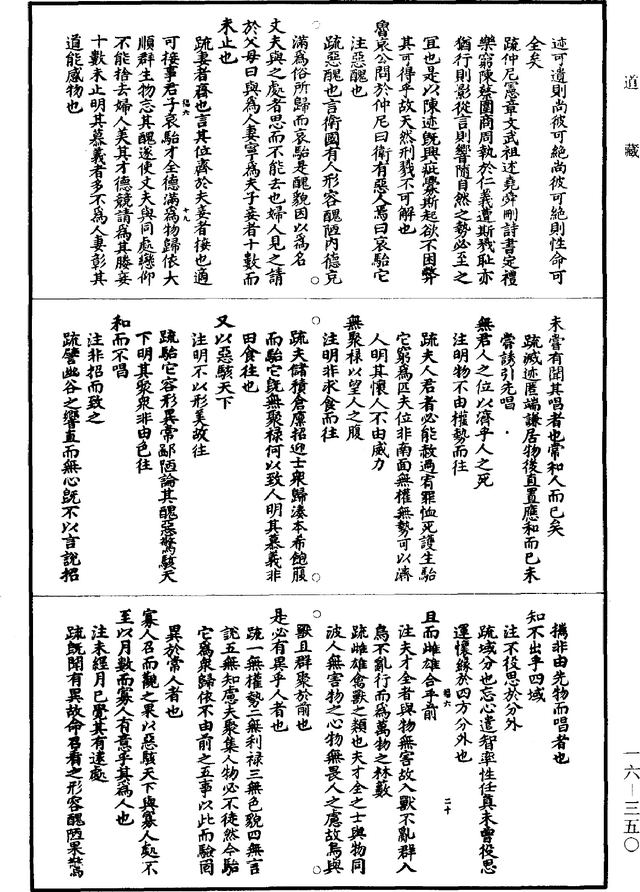 迹可遺則尚彼可絕尚彼可絕則性命可
全矣
疏仲尼憲章文武祖述堯舜刪詩書定禮
樂窮陳蔡圍商周執於仁義遭斯戮恥亦
猶行則影從言則響隨自然之勢必至之
宜也是以陳迹既興疵釁斯起欲不困弊
其可得乎故天然刑戮不可解也
魯哀公問於仲尼曰衛有惡人焉曰哀駘它
注惡醜也
疏惡醜也言衛國有人形容醜陋內德充
滿為俗所歸而哀駘是醜貌因以為名
丈夫與之處者思而不能去也婦人見之請
於父母曰與為人妻寧為夫子妾者十數而
未止也
疏妻者齊也言其位齊於夫妾者接也適
可接事君子哀駘才全德滿為物歸依大
順群生物忘其醜遂使丈夫與同處戀仰
不能捨去婦人美其才德競請為其媵妾
十數未止明其慕義者多不為人妻彰其
道能感物也
未嘗有聞其唱者也常和人而已矣
疏滅迹匿端謙居物後直置應和而已未
嘗誘引先唱
無君人之位以濟乎人之死
注明物不由權勢而往
疏夫人君者必能赦過宥罪恤死護生駘
它窮為匹夫位非南面無權無勢可以濟
人明其懷人不由威力
無聚祿以望人之腹
注明非求食而往
疏夫儲積倉廩招迎士眾歸湊本希飽腹
而駘它既無聚祿何以致人明其慕義非
由食往也
又以惡駭天下
注明不以形美故往
疏駘它容形異常鄙陋論其醜惡驚駭天
下明其聚眾非由色往
和而不唱
注非招而致之
疏譬幽谷之響直而無心既不以言說招
攜非由先物而唱者也
知不出乎四域
注不役思於分外
疏域分也忘心遣智率性任真未曾役思
運懷緣於四方分外也
且而雌雄合乎前
注夫才全者與物無害故入獸不亂群入
鳥不亂行而為萬物之林藪
疏雌雄禽獸之類也夫才全之士與物同
波人無害物之心物無畏人之慮故鳥與
獸且群聚於前也
是必有異乎人者也
疏一無權勢二無利祿三無色貌四無言
說五無知慮夫聚集人物必不徒然今駘
它為眾歸依不由前之五事以此而驗固
異於常人者也
寡人召而觀之果以惡駭天下與寡人處不
至以月數而寡人有意乎其為人也
注未經月已覺其有遠處
疏既聞有異故命召看之形容醜陋果驚為
十九
二十
道藏
一六—三五〇